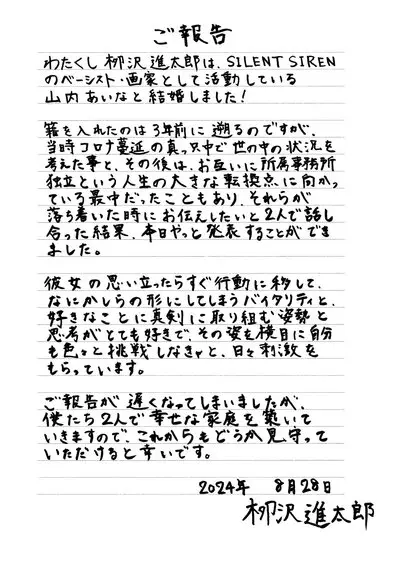 ご報告
わたくし 柳沢 進太郎は、SILENT SIREN
のベーシスト・画家として活動している
山内 あいなと結婚しました！
籍を入れたのは3年前に遡るのですが、
当時コロナ蔓延の真っ只中で世の中の状況を
考えた事と、その後は、お互いに所属事務所
独立という人生の大きな転換点に向かっ
ている最中だったこともあり、それらが
落ち着いた時にお伝えしたいと2人で話し
合った結果、本日やっと発表することができ
ました。
彼女の思い立ったらすぐ行動に移して、
なにかしらの形にしてしまうバイタリティと、
好きなことに真剣に取り組む姿勢と
思考がとても好きで、その姿を横目に自分
も色々と挑戦しなきゃと、日々刺激を
もらっています。
ご報告が遅くなってしまいましたが、
僕たち2人で幸せな家庭を築いて
いきますので、これからもどうか見守って
いただけると幸いです。
2024年 8月28日
柳沢 進太郎